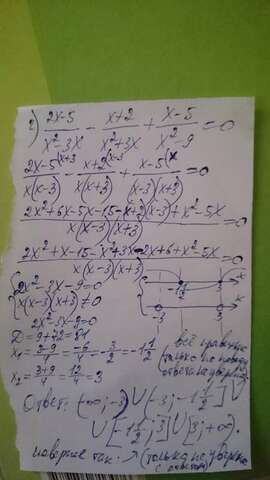 2) (2x-5)/(x²-3x) - (x+2)/(x²+3x) + (x-5)/(x²-9) = 0
(2x-5(x+3)/(x(x-3)) - (x+2(x-3)/(x(x+3)) + (x-5(x)/((x-3)(x+3)) = 0
(2x²+6x-5x-15-(x+2)(x-3)+x²-5x)/(x(x-3)(x+3)) = 0
(2x²+x-15-x²+3x-2x+6+x²-5x)/(x(x-3)(x+3)) = 0
{2x²-3x-9=0
{x(x-3)(x+3)≠0
2x²-3x-9=0
D=9+72=81
x₁=(3-9)/4=-6/4=-3/2=-1 1/2
x₂=(3+9)/4=12/4=3
-1 1/2 3 x
-3 3 x
всё правильно
(только не
ответа не уверена)
Ответ: (-∞;-3)∪(-3;-1 1/2]∪
∪[-1 1/2;3]∪[3;+∞).
наверное так. (только не уверена
с ответом)